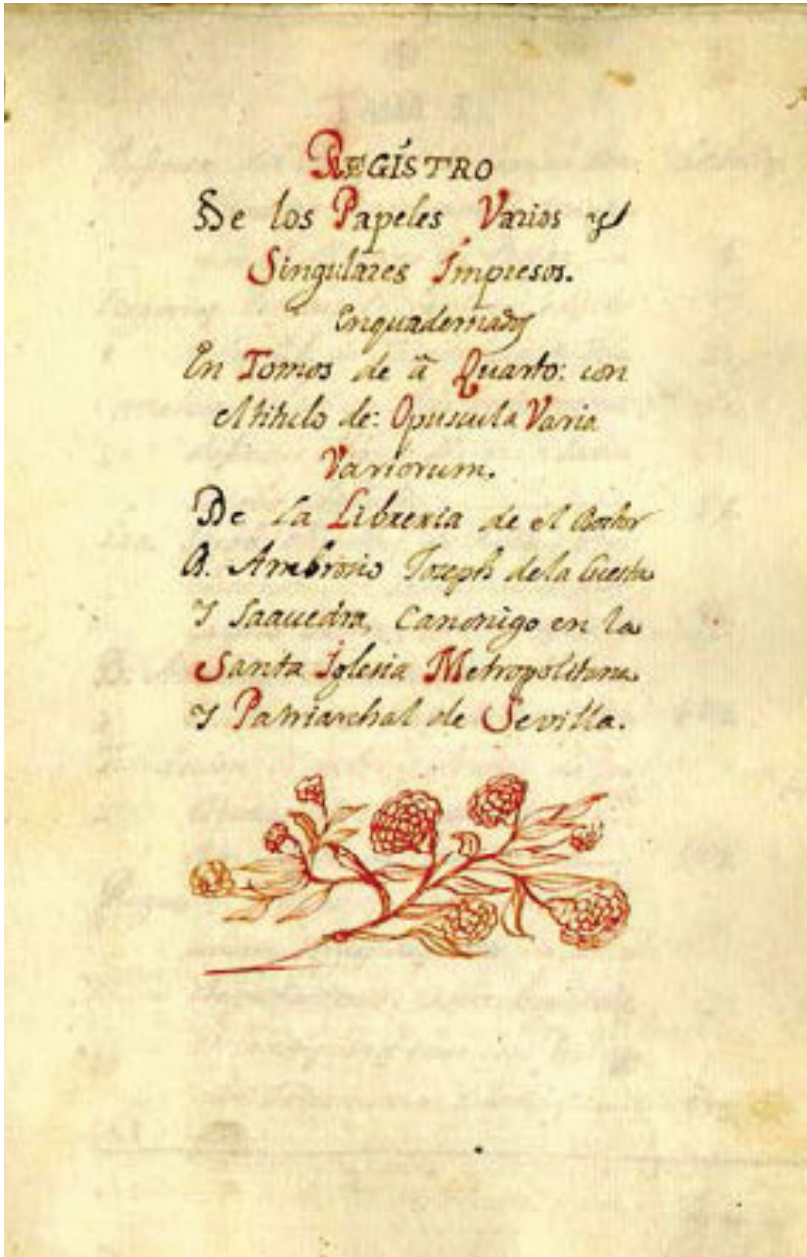 REGÍSTRO
De los Papeles Varios y
Singulares Ímpresos.
Enquadernados
En Tomos de à Quarto: con
el titulo de: Opuscula Varia
Variorum.
De la Libreria de el Doctor
D. Ambrosio Joseph de la Cuesta
Y Saavedra, Canonigo en la
Santa Iglesia Metropolitana
Y Patriarchal de Sevilla.